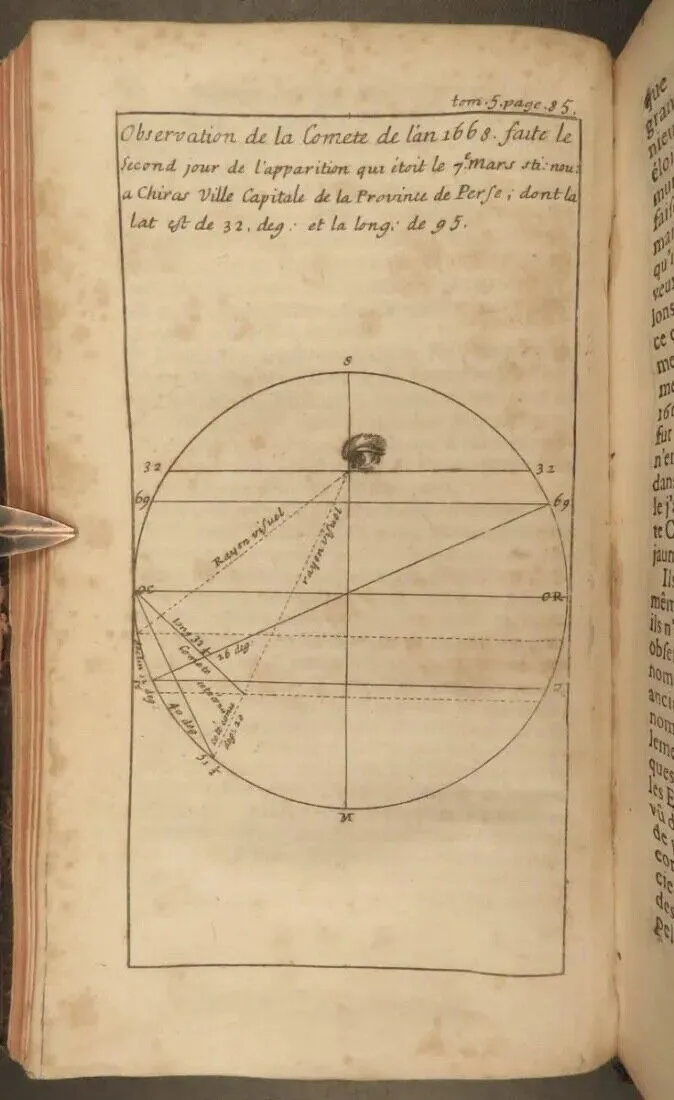 tom.5.page.85.
Observation de la Comete de l'an 1668. faite le
Second jour de l'apparition qui étoit le 7.e Mars sti: nou:
a Chiras Ville Capitale de la Province de Perse; dont la
lat est de 32. deg: et la long: de 95.
S
32 32
69 69
Rayon visuel
rayon visuel
OC OR
long 32
26 deg:
Comete
40 deg:
deg: 20
que
gran
nieu
éloi
mu
fais
man
qu'i
veux
lons
ce c
me
me
166
fur
n'er
dans
le j'a
te C
jaun
Ils
mêm
ils n'
obse
nom
anci
nom
leme
ques
les E
vû d
de v
con
cie
des
Pel